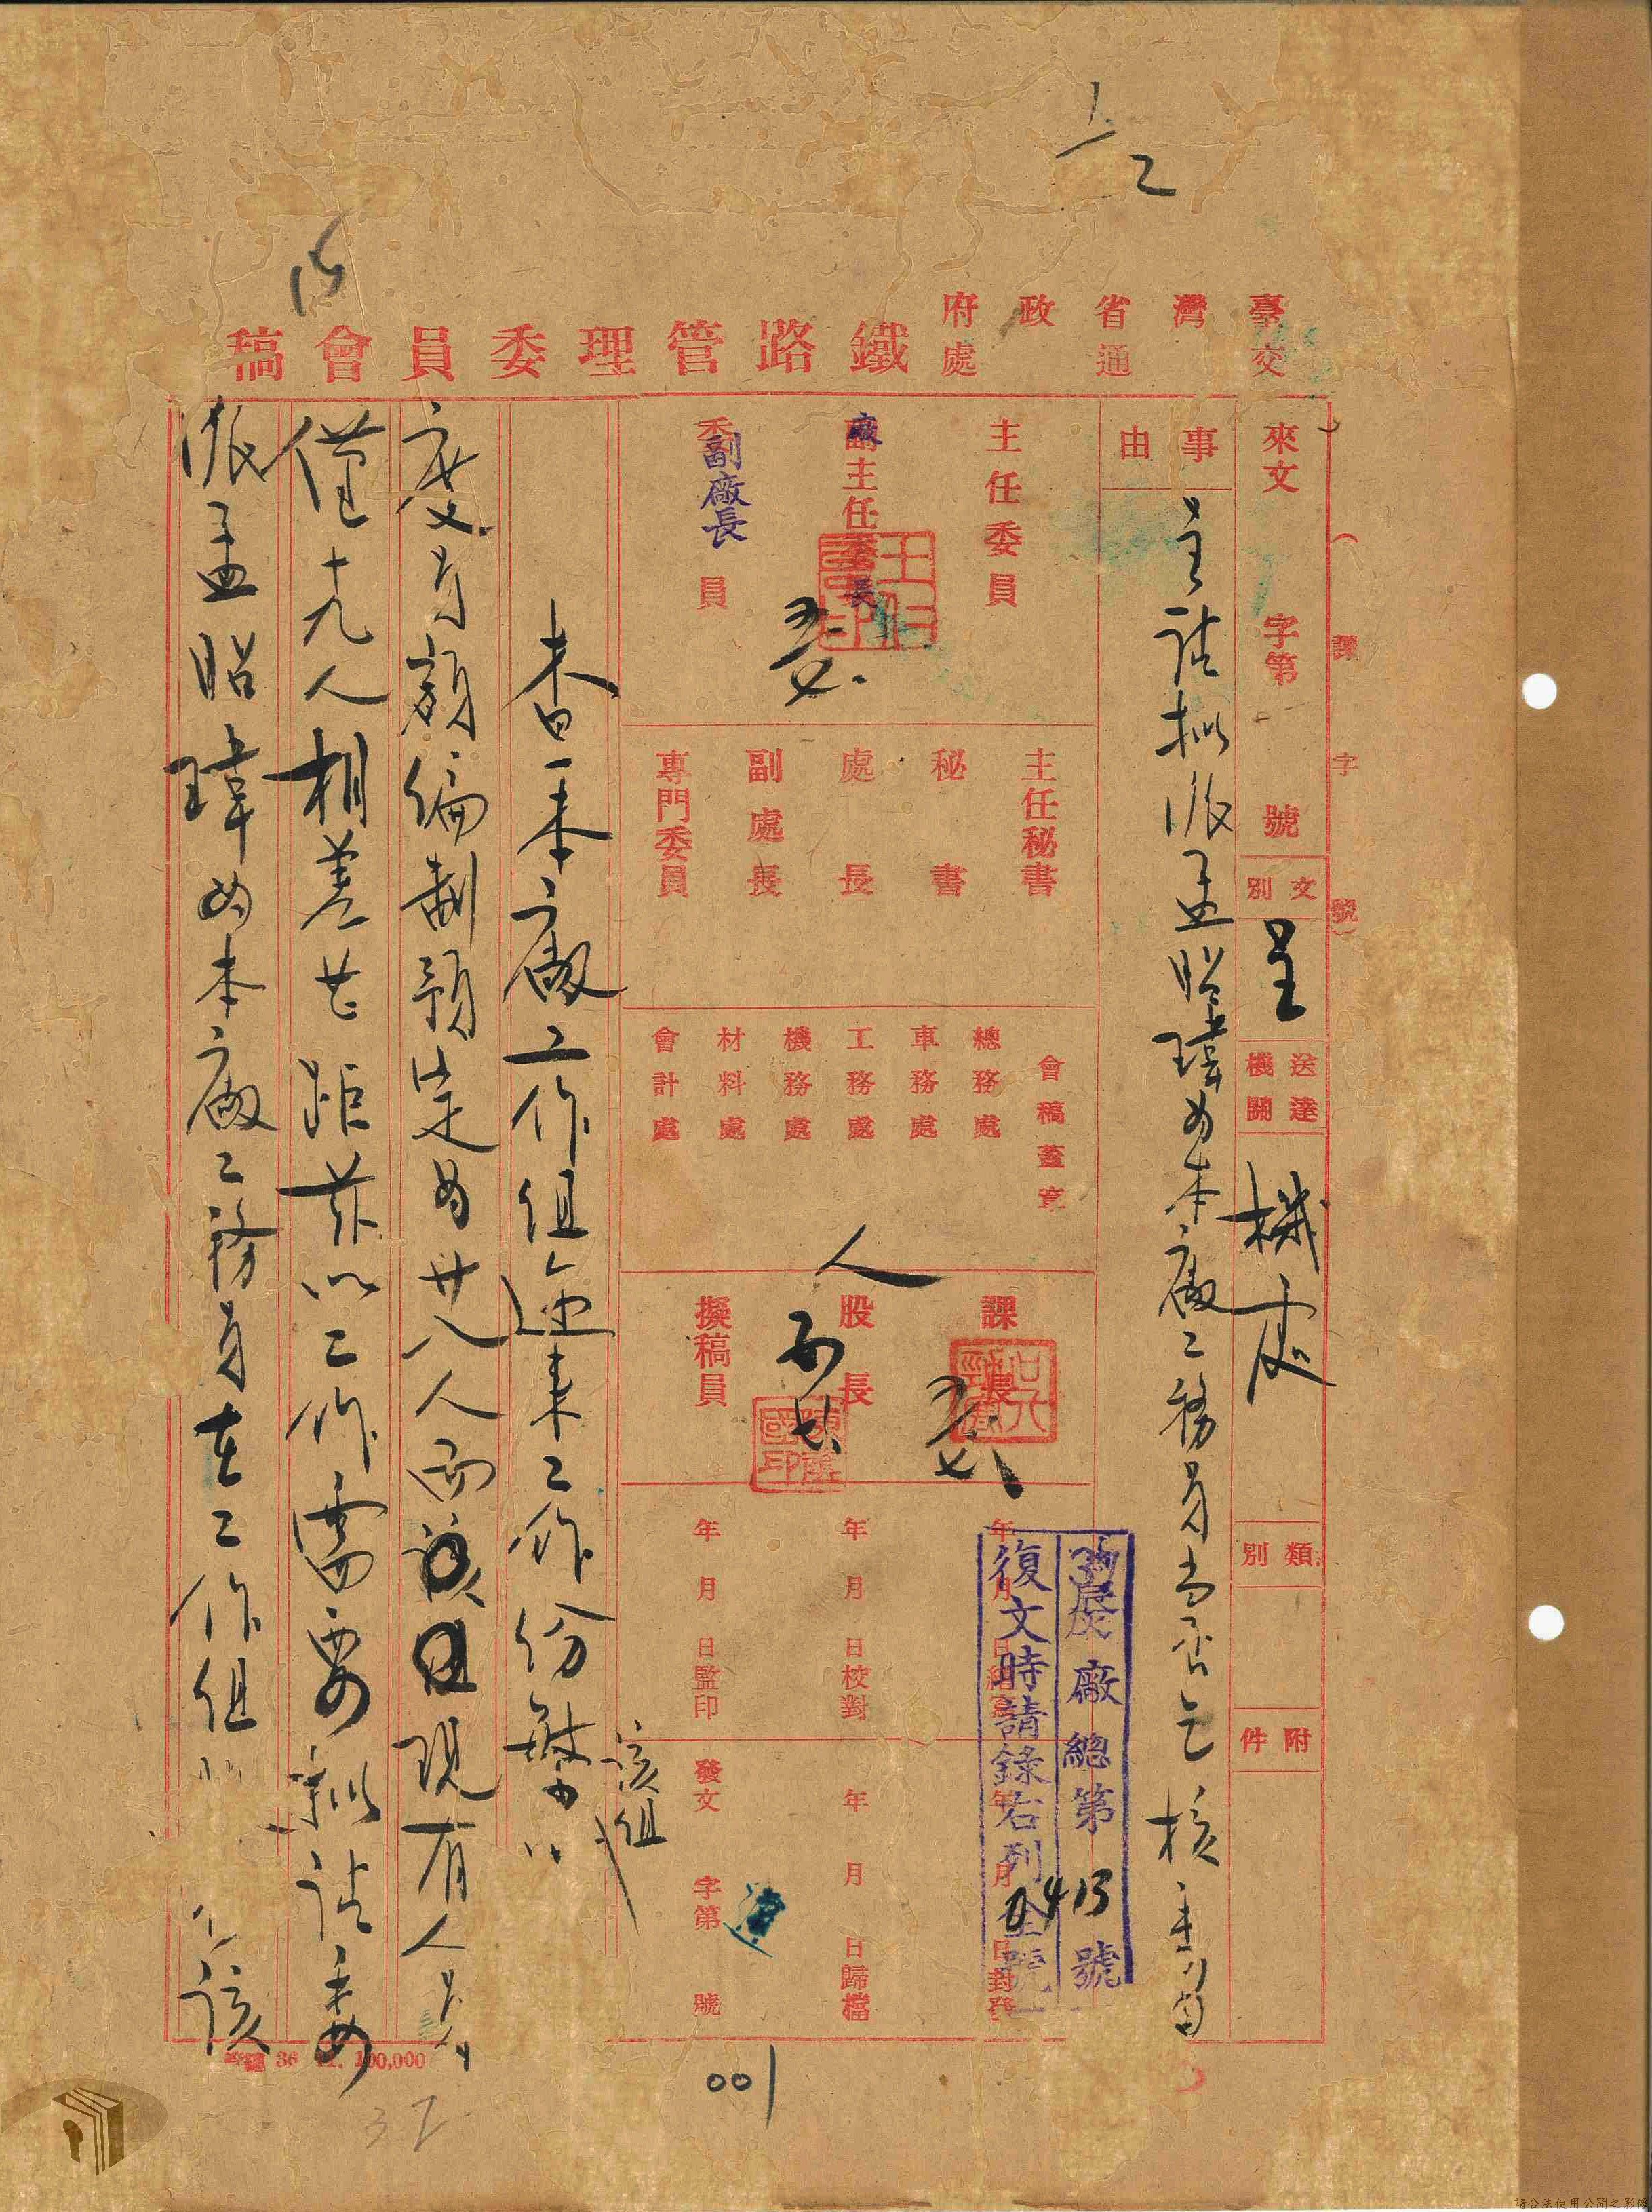 1/2
15
臺灣省政府
交通處
鐵路管理委員會稿
(課字號)
來文 字第 號
文別 呈
送達機關 機處
類別
附件
事由
呈請擬派孟昭瑋為本廠工務員當否乞核示由
主任委員
副主任委員
廠長
委員
副廠長
主任秘書
秘書
處長
副處長
專門委員
會稿蓋章
總務處
車務處
工務處
機務處
材料處
會計處
課長
股長
擬稿員
人
年月日繕寫
年月日校對
年月日監印
年月日對發
年月日歸檔
發文 字第 號
廠總第0413號
復文時請錄右列全號
該組
查本廠工作組邇來工作份繁
度員額編制預定為廿八人而該組現有人員
僅十九人相差甚距茲以工作需要擬請委
派孟昭瑋為本廠工務員在工作組 該
36 12. 100,000
001
32
請合法使用公開之影像